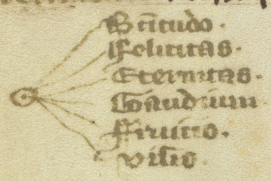 Btitudo.
Felicitas.
Eternitas.
Gaudium
Fruitio.
Visio.